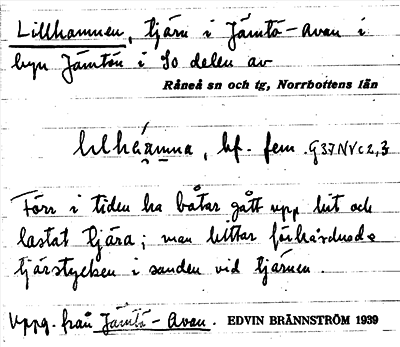 Lillhamnen, tjärn i Jämtö-Avan i
byn Jämtön i So delen av
Råneå sn och tg, Norrbottens län
lılhámna, bf. fem. G37NVc2,3
Förr i tiden ha båtar gått upp hit och
lastat tjära; man hittar förhårdnade
tjärstycken i sanden vid tjärnen.
Uppg. från Jämtö-Avan. EDVIN BRÄNNSTRÖM 1939